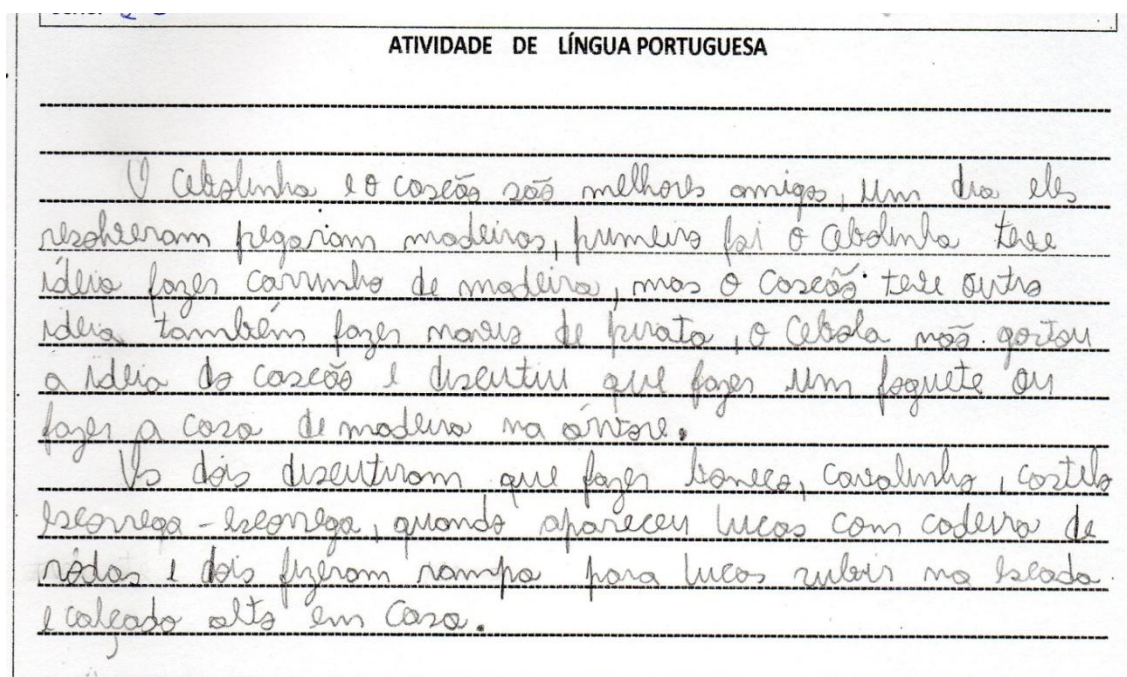 ATIVIDADE DE LÍNGUA PORTUGUESA
O Cebolinha e o cascão são melhores amigos, um dia eles
resolveram pegariam madeiras, primeiro foi o Cebolinha teve
idéia fazer carrinho de madeira, mas o Cascão teve outra
ideia também fazer navio de pirata, o Cebola não gostou
a idéia do cascão e discutiu que fazer um foguete ou
fazer a casa de madeira na árvore.
Os dois discutiram que fazer boneco, cavalinho, castelo
escorrega-escorrega, quando apareceu Lucas com cadeira de
rodas e dois fizeram rampa para Lucas subir na escada
e calçado alto em casa.